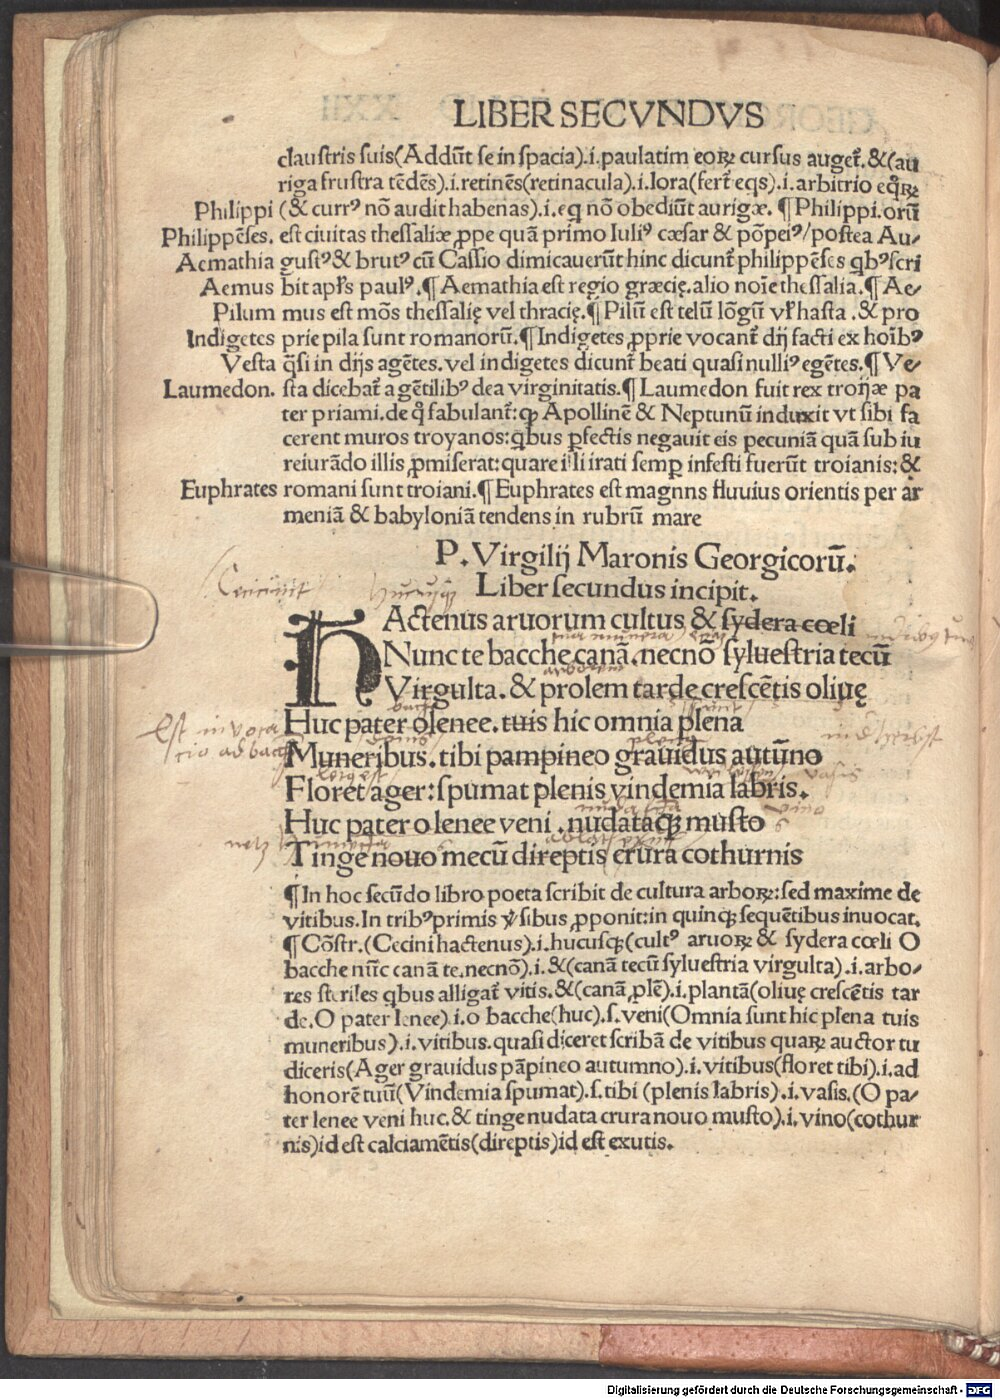 LIBER SECVNDVS
claustris suis(Addūt se in spacia).i.paulatim eoꝝ cursus auget̄.&(au
riga frustra tēdēs).i.retinēs(retinacula).i.lora(fert̄ eqs).i.arbitrio eqͦꝝ
Philippi (& currꝰ nō audit habenas).i.eq nō obediūt aurigæ. ¶Philippi.orū
Philippēses. est ciuitas thessaliæ ꝓpe quā primo Iuliꝰ cæsar & pōpeiꝰ/postea Au⸗
Aemathia gustꝰ & brutꝰ cū Cassio dimicauerūt hinc dicunt̄ philippēses qbꝰ scri
Aemus bit apl̄s paulꝰ.¶Aemathia est regio græcię.alio noīe thessalia.¶Ae⸗
Pilum mus est mōs thessalię vel thracię.¶Pilū est telū lōgū vl̄ hasta .& pro
Indigetes prie pila sunt romanorū.¶Indigetes ꝓprie vocant̄ dij facti ex hoībꝰ
Vesta q̄si in dijs agētes.vel indigetes dicunt̄ beati quasi nulliꝰ egētes.¶Ve⸗
Laumedon. sta dicebat̄ a gētilibꝰ dea virginitatis.¶Laumedon fuit rex troijæ pa
ter priami.de qͦ fabulant̄:ꝙ Apollinē & Neptunū induxit vt sibi fa
cerent muros troyanos:qbus ꝑfectis negauit eis pecuniā quā sub iu
reiurādo illis ꝓmiserat:quare illi irati semꝑ infesti fuerūt troianis:&
Euphrates romani sunt troiani.¶Euphrates est magnns fluuius orientis per ar
meniā & babyloniā tendens in rubrū mare
P. Virgilij Maronis Georgicorū.
Liber secundus incipit.
Cecinit hucusqꝫ
HActenus aruorum cultus & sydera cœli
Nunc te bacche canā.necnō syluestria tecū
Virgulta.& prolem tarde crescētis oliuę
Huc pater o lenee.tuis hic omnia plena
Muneribus.tibi pampineo grauidus autūno
Floret ager:spumat plenis vindemia labris.
vasis
Huc pater o lenee veni .nudataqꝫ musto
vino
Tinge nouo mecū direptis crura cothurnis
¶In hoc secūdo libro poeta scribit de cultura arboꝝ:sed maxime de
vitibus.In tribꝰ primis v̄sibus ꝓponit:in quinqꝫ sequētibus inuocat.
¶Cōstr.(Cecini hactenus).i.hucusqꝫ(cultꝰ aruoꝝ & sydera cœli O
bacche nūc canā te.necnō).i.&(canā tecū syluestria virgulta).i.arbo⸗
res steriles qbus alligat̄ vitis.&(canā ꝓlē).i.plantā(oliuę crescētis tar
de.O pater lenee).i.o bacche(huc).s.veni(Omnia sunt hic plena tuis
muneribus).i.vitibus.quasi diceret scribā de vitibus quaꝝ auctor tu
diceris(Ager grauidus pāpineo autumno).i.vitibus(floret tibi).i.ad
honorē tuū(Vindemia spumat).s.tibi (plenis labris).i.vasis.(O pa⸗
ter lenee veni huc.& tinge nudata crura nouo musto).i.vino(cothur
nis)id est calciamētis(direptis)id est exutis.
Digitalisierung gefördert durch die Deutsche Forschungsgemeinschaft - DFG